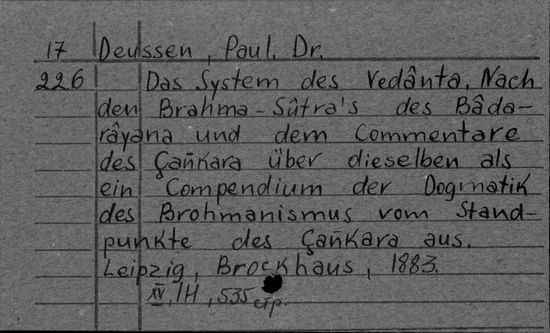 17 Deussen, Paul. Dr.
226 Das System des Vedânta. Nach
den Brahma-Sûtra's des Bâda-
râyana und dem Commentare
des Çañkara über dieselben als
ein Compendium der Dogmatik
des Brohmanismus vom Stand-
punkte des Çañkara aus.
Leipzig, Brockhaus, 1883.
XV, 1H, 535 стр.